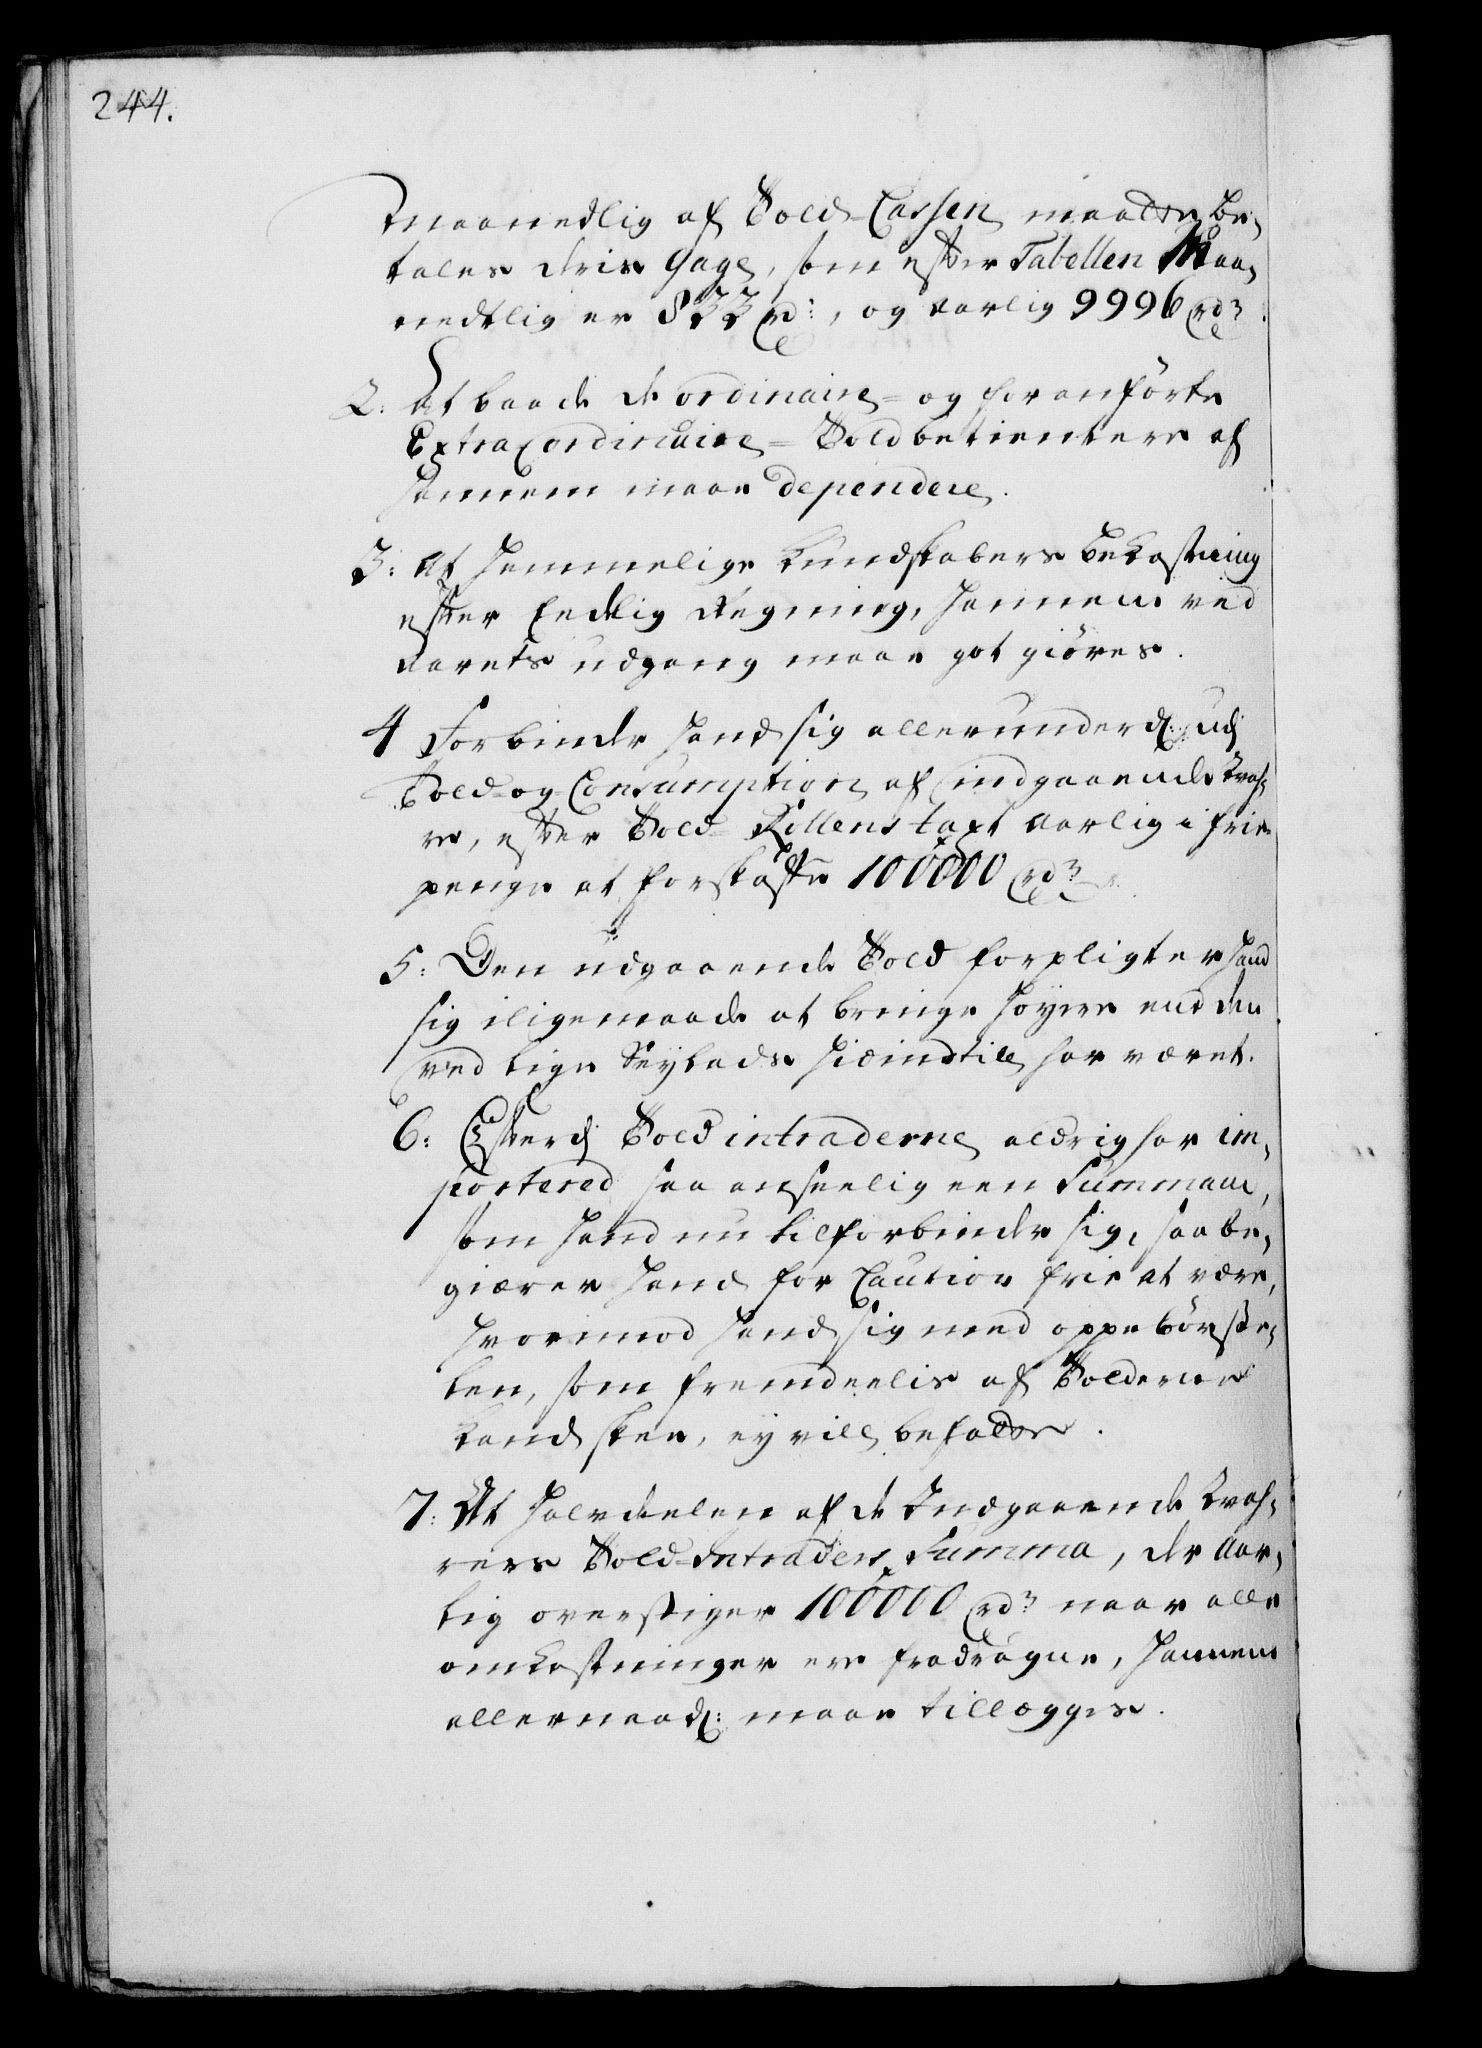 244.
maanedlig af Told-Cassen maatte be-
tales deris Gage, som efter Tabellen Maa-
nedtlig er 833 rd:, og aarlig 9996 rdr.
2: At baade de ordinaire- og for anförte
Extraordinaire- Toldbetientere af
hannem maae dependere.
3: At hemmelige Kundskabers bekostning
efter Eedlig Regning, hannem ved
Aarets udgang maae got giöres.
4 Forbinder hand sig allerunderd: udj
Told- og Consumption af indgaaende Vah-
re, efter Told-Rollens taxt Aarlig i frie
penge at forskaffe 100000 rdr
5: Den udgaaende Told forpligter hand
sig iligemaade at bringe höyere end den
ved lige Seylads hidindtill har været.
6: Efterdj Told intraderne aldrig har im-
portered saa anseelig een Summam,
som hand nu tilforbinder sig, saa be-
giærer hand for Caution frie at være,
hvorimod hand sig med oppebörste-
len, som fremdeelis af Tolderne
kand skee, ey vill befatte.
7: At halvdeelen af de Indgaaende Vah-
rers Told-Intraders Summa, der Aar-
lig overstiger 100000 rdr naar alle
omkostninger ere fradragne, hannem
allernaad: maae tillægges.